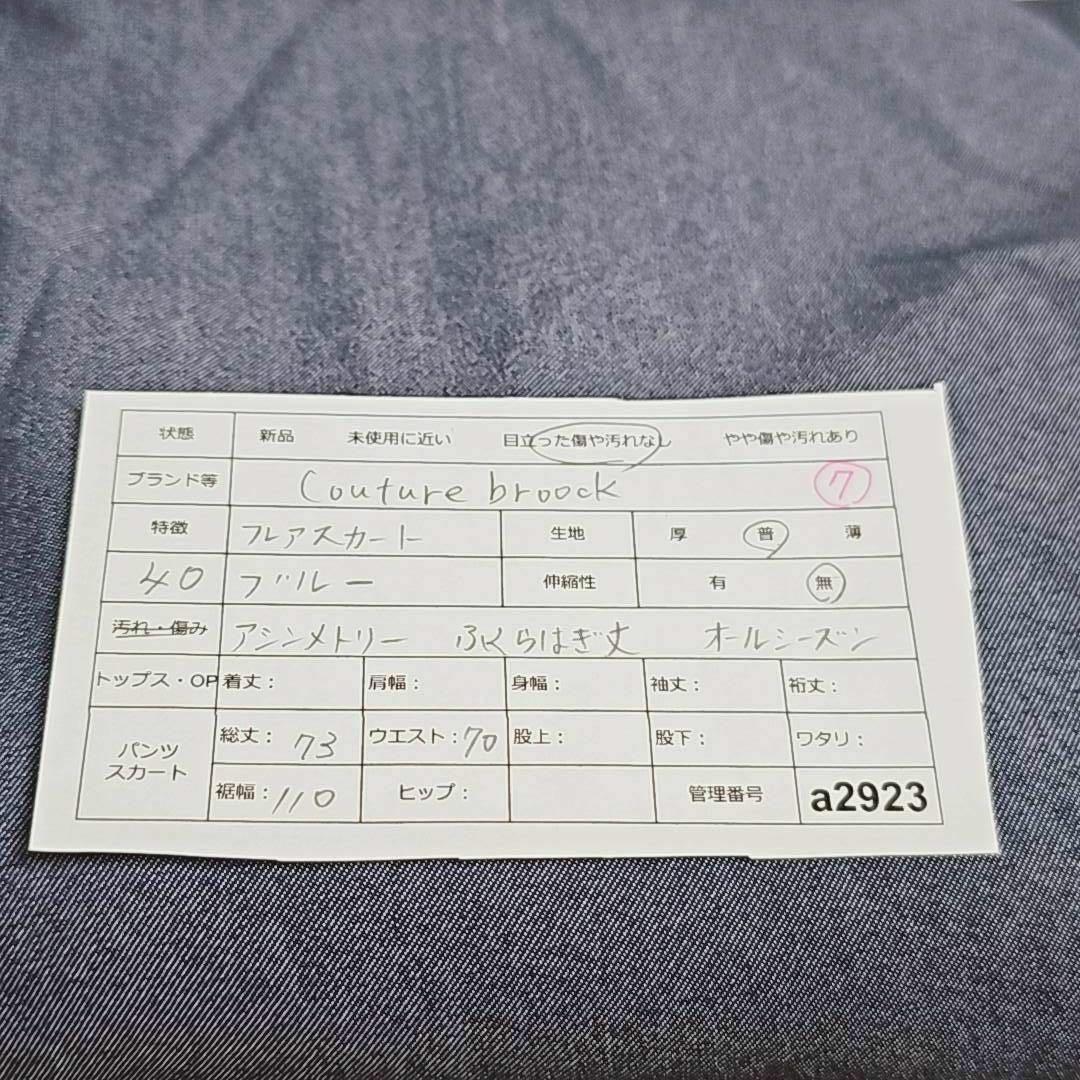 状態 新品 未使用に近い 目立った傷や汚れなし やや傷や汚れあり
ブランド等 Couture broock 7
特徴 フレアスカート 生地 厚 普 薄
40 ブルー 伸縮性 有 無
汚れ・傷み アシンメトリー ふくらはぎ丈 オールシーズン
トップス・OP 着丈: 肩幅: 身幅: 袖丈: 裄丈:
パンツ
スカート
総丈: 73 ウエスト: 70 股上: 股下: ワタリ:
裾幅: 110 ヒップ: 管理番号 a2923